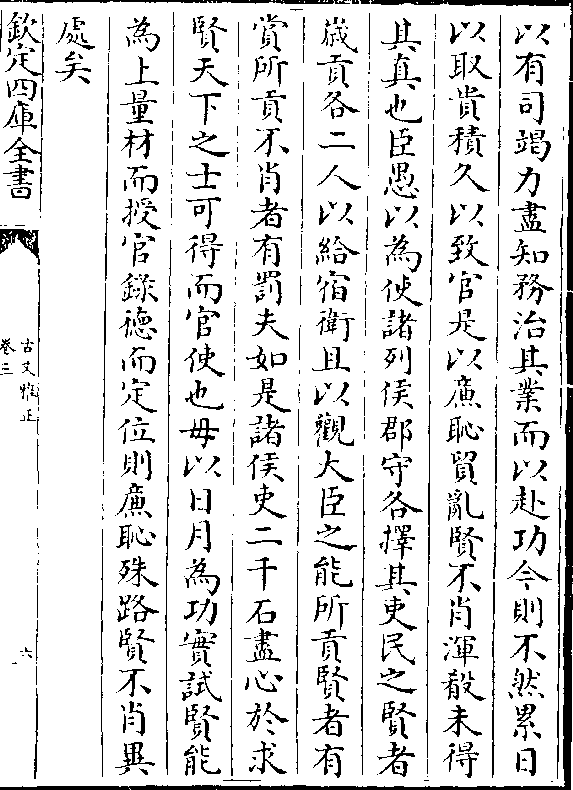 以有司竭力盡知務治其業而以赴功今則不然累日
以取貴積久以致官是以廉恥貿亂賢不肖渾殽未得
其真也臣愚以為使諸列侯郡守各擇其吏民之賢者
歲貢各二人以給宿衛且以觀大臣之能所貢賢者有
賞所貢不肖者有罰夫如是諸侯吏二千石盡心於求
賢天下之士可得而官使也毋以日月為功實試賢能
為上量材而授官錄德而定位則廉恥殊路賢不肖異
處矣
欽定四庫全書
古文雅正
卷三
六